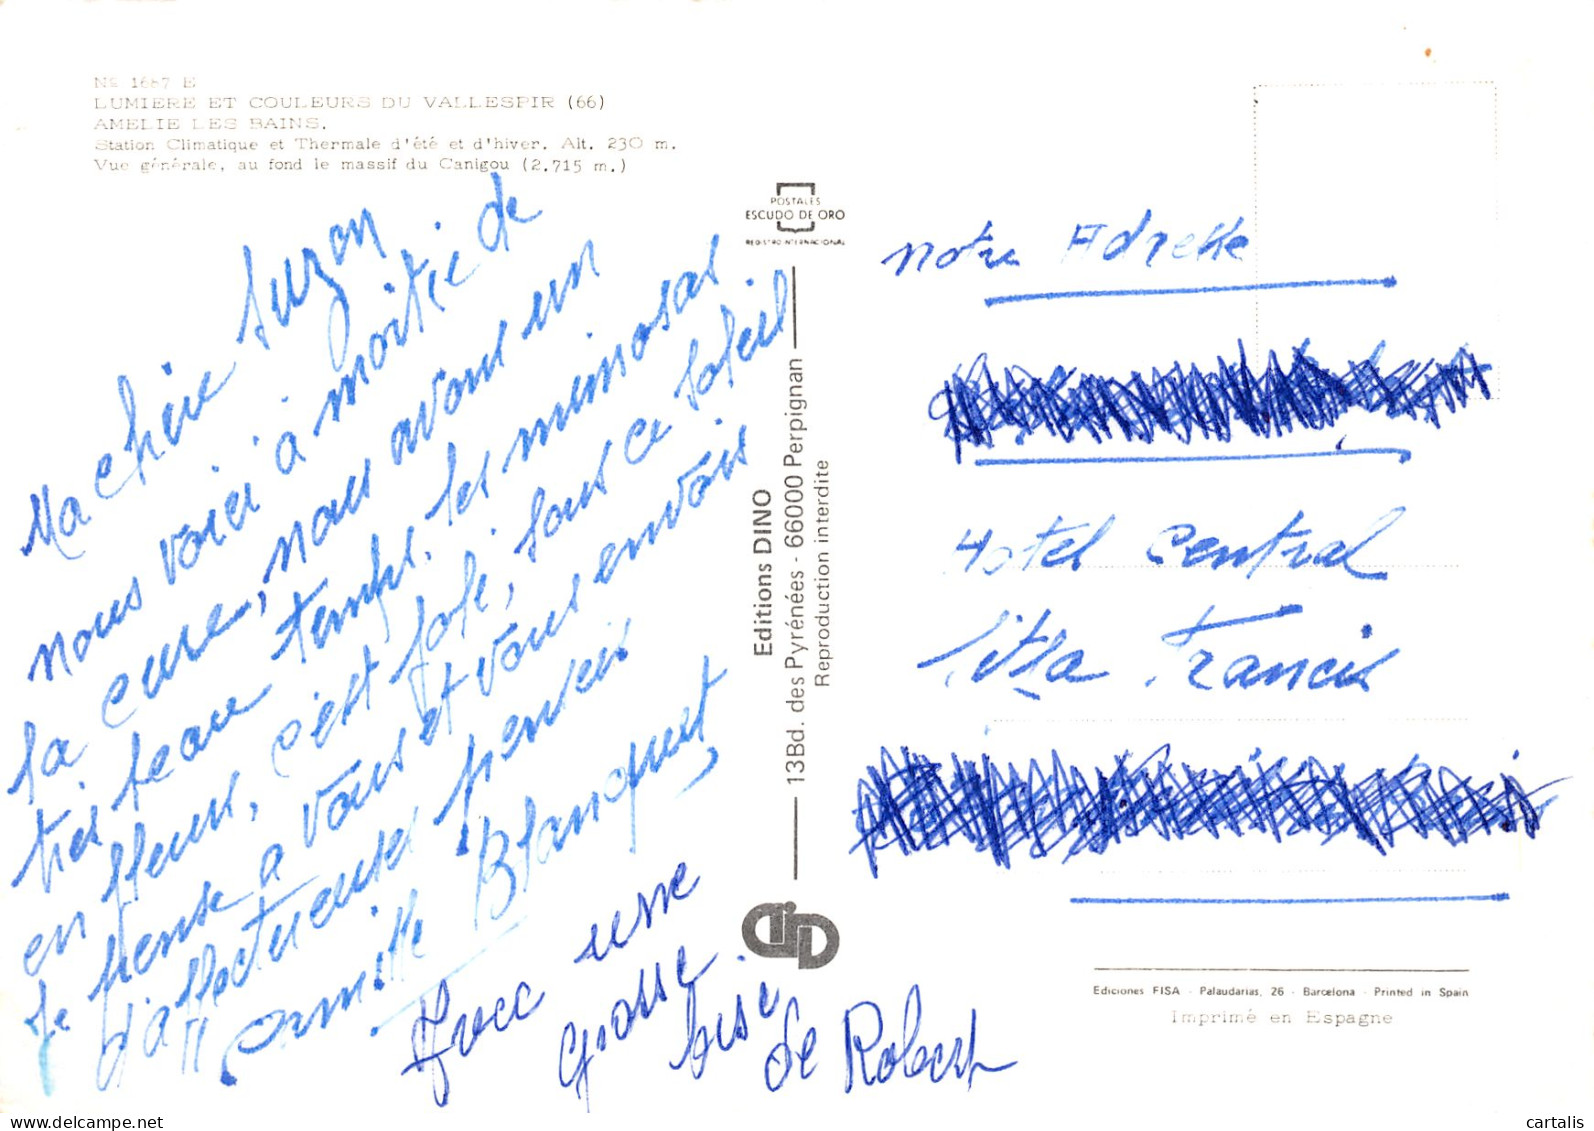 No 1687 E
LUMIERE ET COULEURS DU VALLESPIR (66)
AMELIE LES BAINS.
Station Climatique et Thermale d'été et d'hiver. Alt. 230 m.
Vue générale, au fond le massif du Canigou (2.715 m.)
Ma chère Suzon
nous voici à moitié de
la cure, nous avons un
très beau temps. les mimosas
en fleurs, c'est joli, sous ce soleil
Je pense a vous et vous envois
d'affectueuses pensées
Blanquet
Avec une
grosse
bise
de Robert
POSTALES
ESCUDO DE ORO
REGISTRO INTERNACIONAL
Editions DINO
13 Bd. des Pyrénées - 66000 Perpignan
Reproduction interdite
notre Adresse
Hotel Central
Francis
Ediciones FISA - Palaudarias, 26 - Barcelona - Printed in Spain
Imprimé en Espagne
cartalis